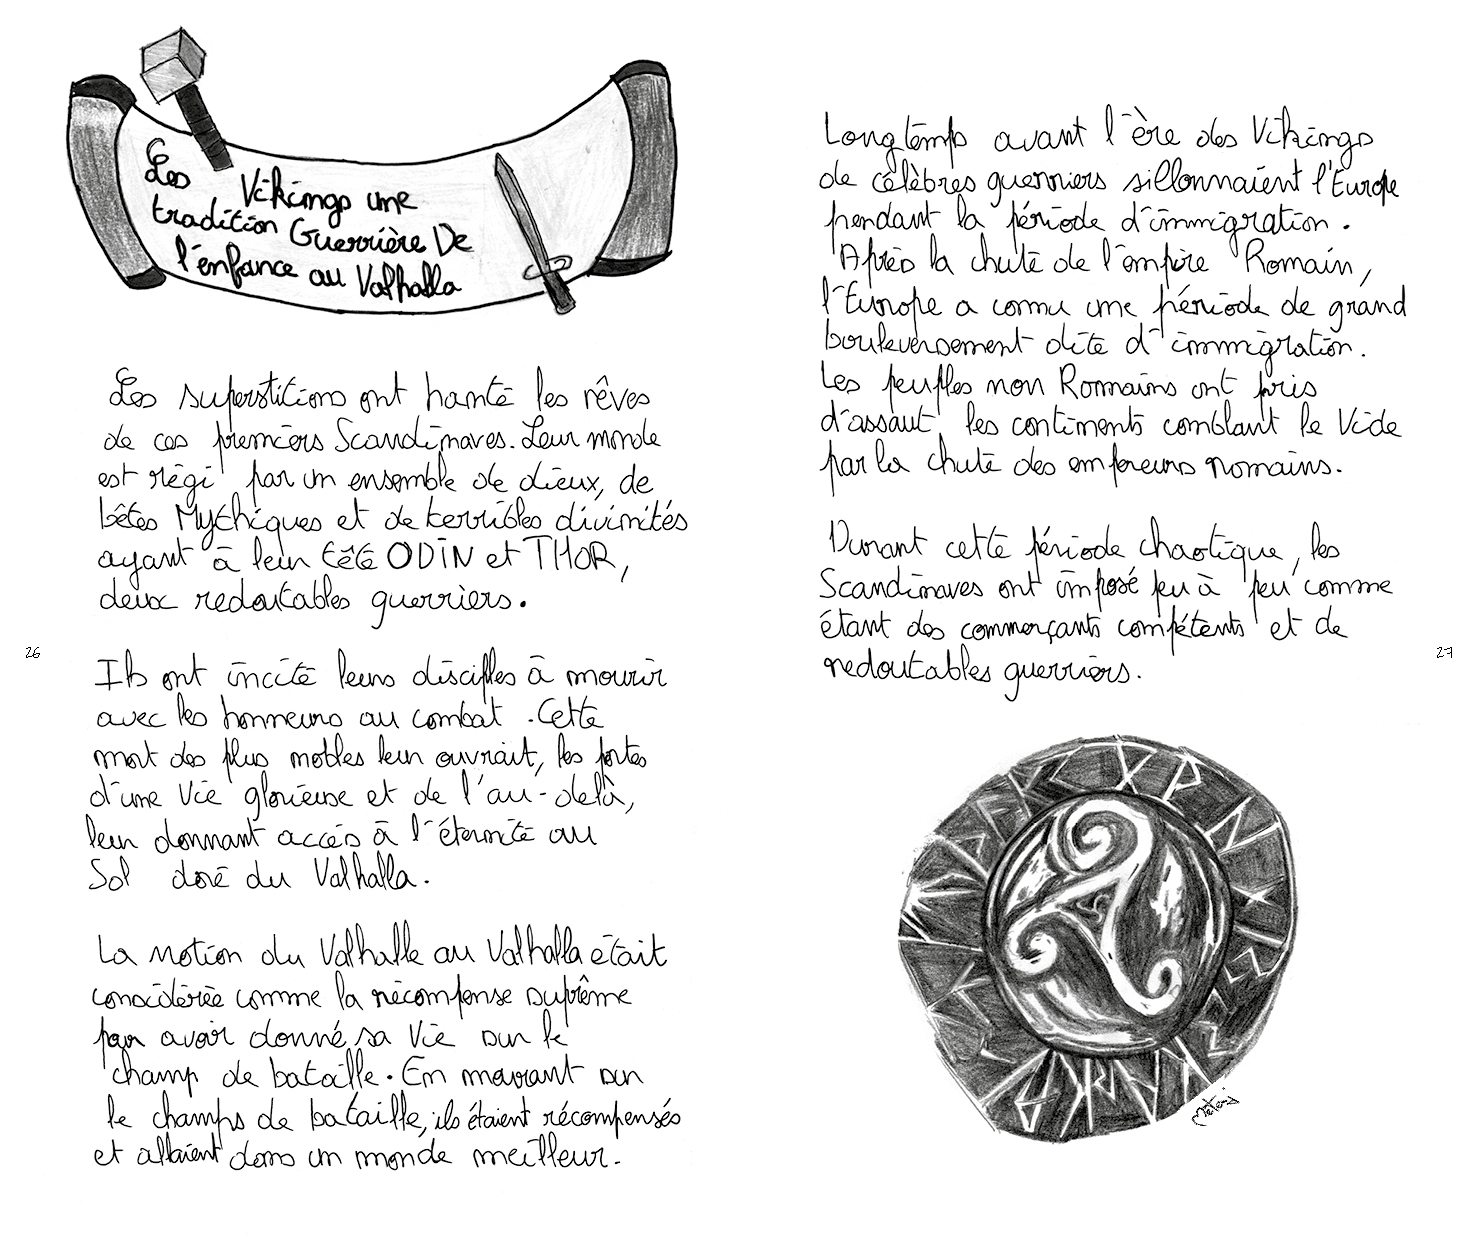 Les Vikings une
tradition Guerrière De
l'enfance au Valhalla
Les superstitions ont hanté les rêves
de ces premiers Scandinaves. Leur monde
est régi par un ensemble de dieux, de
bêtes Mythiques et de terribles divinités
ayant à leur tête ODIN et THOR,
deux redoutables guerriers.
Ils ont incité leurs disciples à mourir
avec les honneurs au combat. Cette
mort des plus nobles leur ouvrait, les portes
d'une vie glorieuse et de l'au-delà,
leur donnant accés à l'éternité au
Sol doré du Valhalla.
La notion du Valhalle au Valhalla était
considérée comme la récompense suprême
pour avoir donné sa vie sur le
champ de bataille. En mourant sur
le champs de bataille, ils étaient récompensés
et allaient dans un monde meilleur.
26
Longtemps avant l'ère des Vikings
de célèbres guerriers sillonnaient l'Europe
pendant la période d'immigration.
Après la chute de l'empire Romain,
l'Europe a connu une période de grand
bouleversement dite d'immigration.
Les peuples non Romains ont pris
d'assaut les continents comblant le vide
par la chute des empereurs romains.
Durant cette période chaotique, les
Scandinaves ont imposé peu à peu comme
étant des commerçants compétents et de
redoutables guerriers.
27